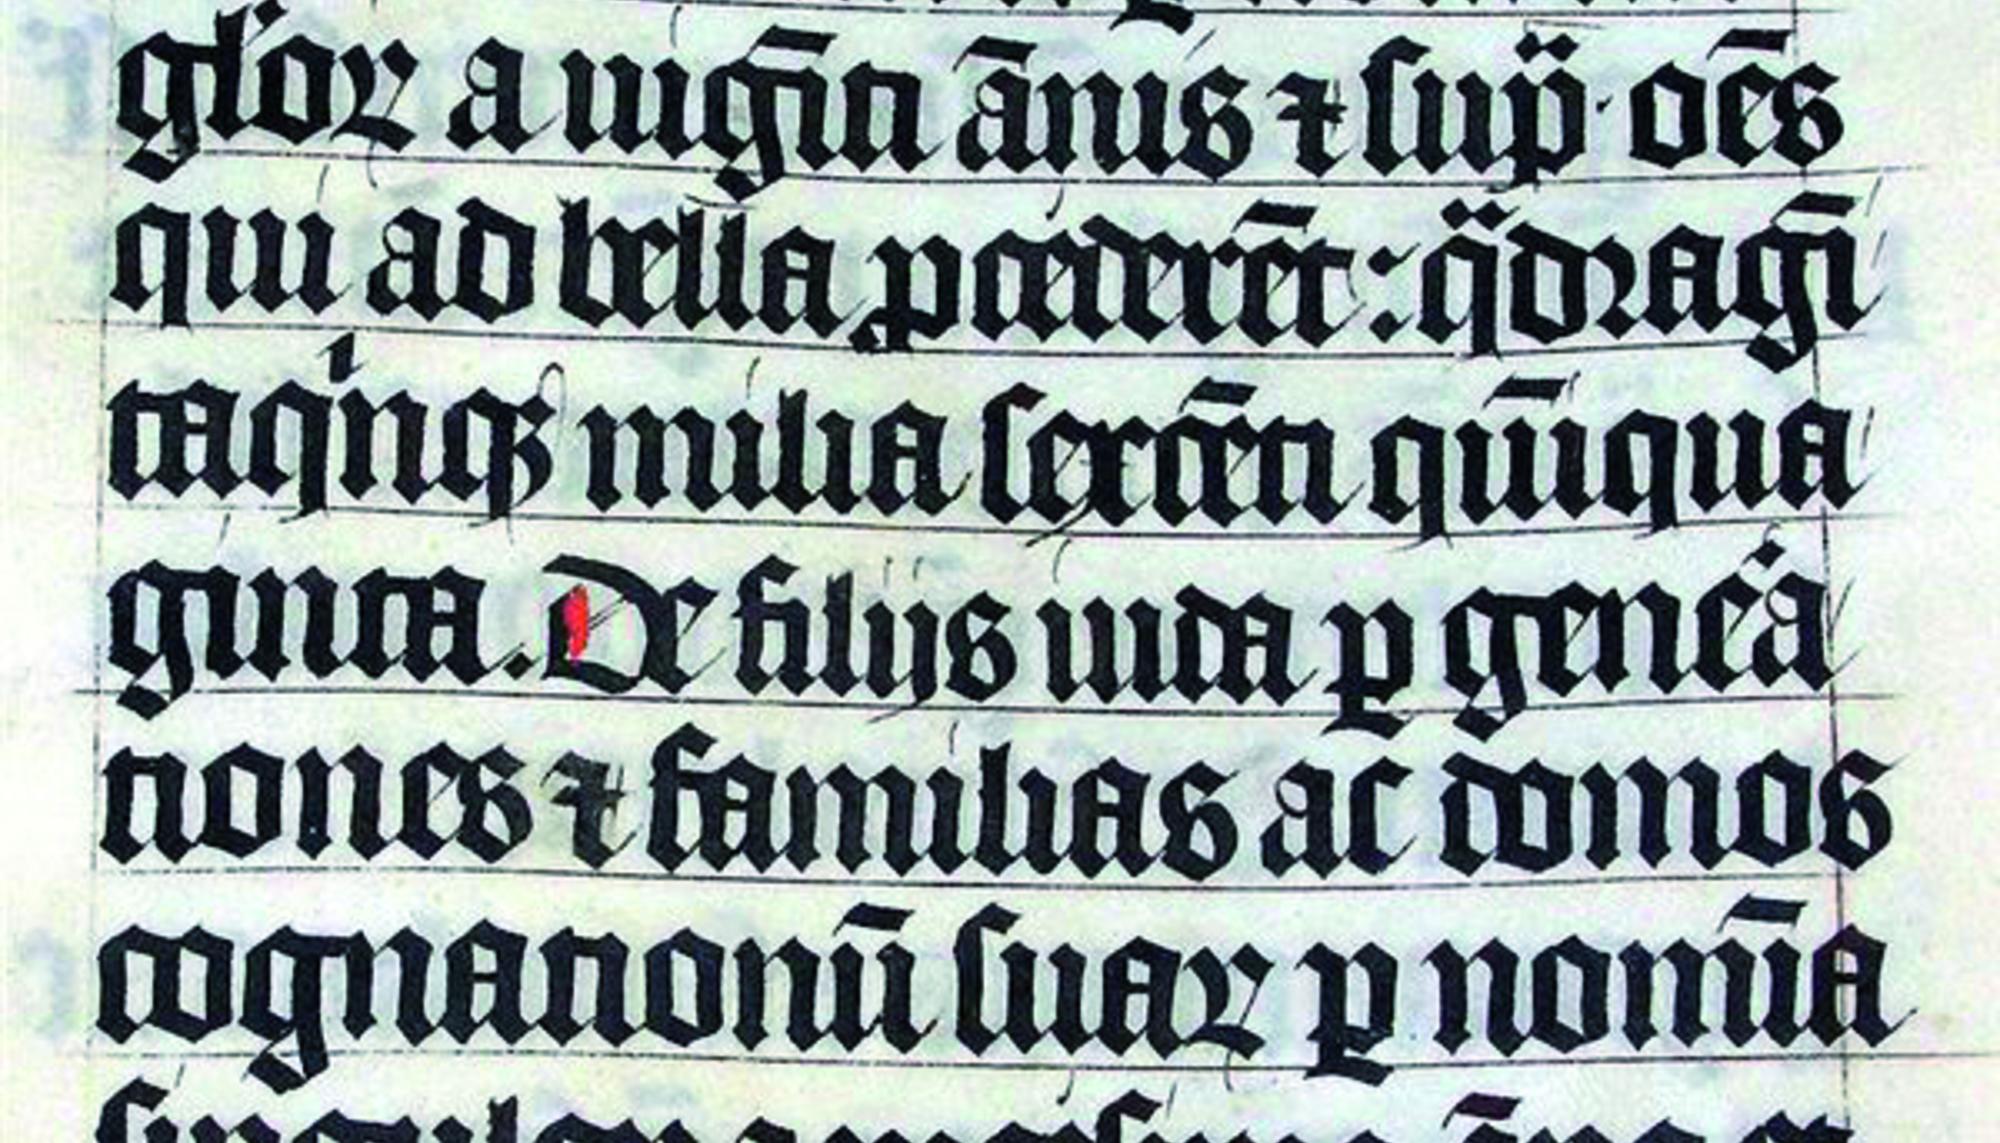 gl'oꝝ a uigīti ānis ⁊ ſup̈· oēs
qui ad bella ꝓcederēt : q̈dragī
taqⁱnqꝫ milia ſexcēti quīqua
ginta. De filijs iuda ꝑ gen̄ea
tiones ⁊ familias ac domos
cognationū ſuaꝝ ꝑ nomīa